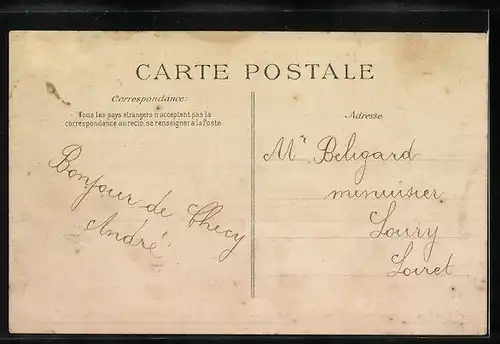 CARTE POSTALE
Correspondance:
Tous les pays étrangers n'acceptent pas la
correspondance au recto, se renseigner à la Poste
Bonjour de Checy
André
Adresse
Mr Beligard
menuisier
Loury
Loiret